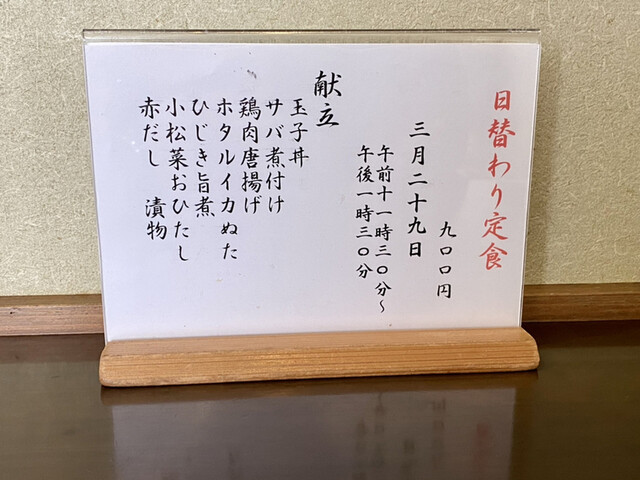 日替わり定食
九〇〇円
三月二十九日
午前十一時三〇分～
午後一時三〇分
献立
玉子丼
サバ煮付け
鶏肉唐揚げ
ホタルイカぬた
ひじき旨煮
小松菜おひたし
赤だし　漬物